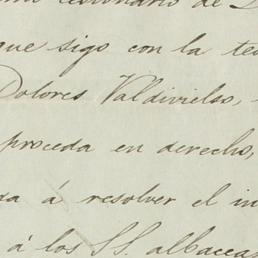 cesionario de
que sigo con la
Dolores Valdivielso,
proceda en derecho,
á resolver el
á los SS. albaceas